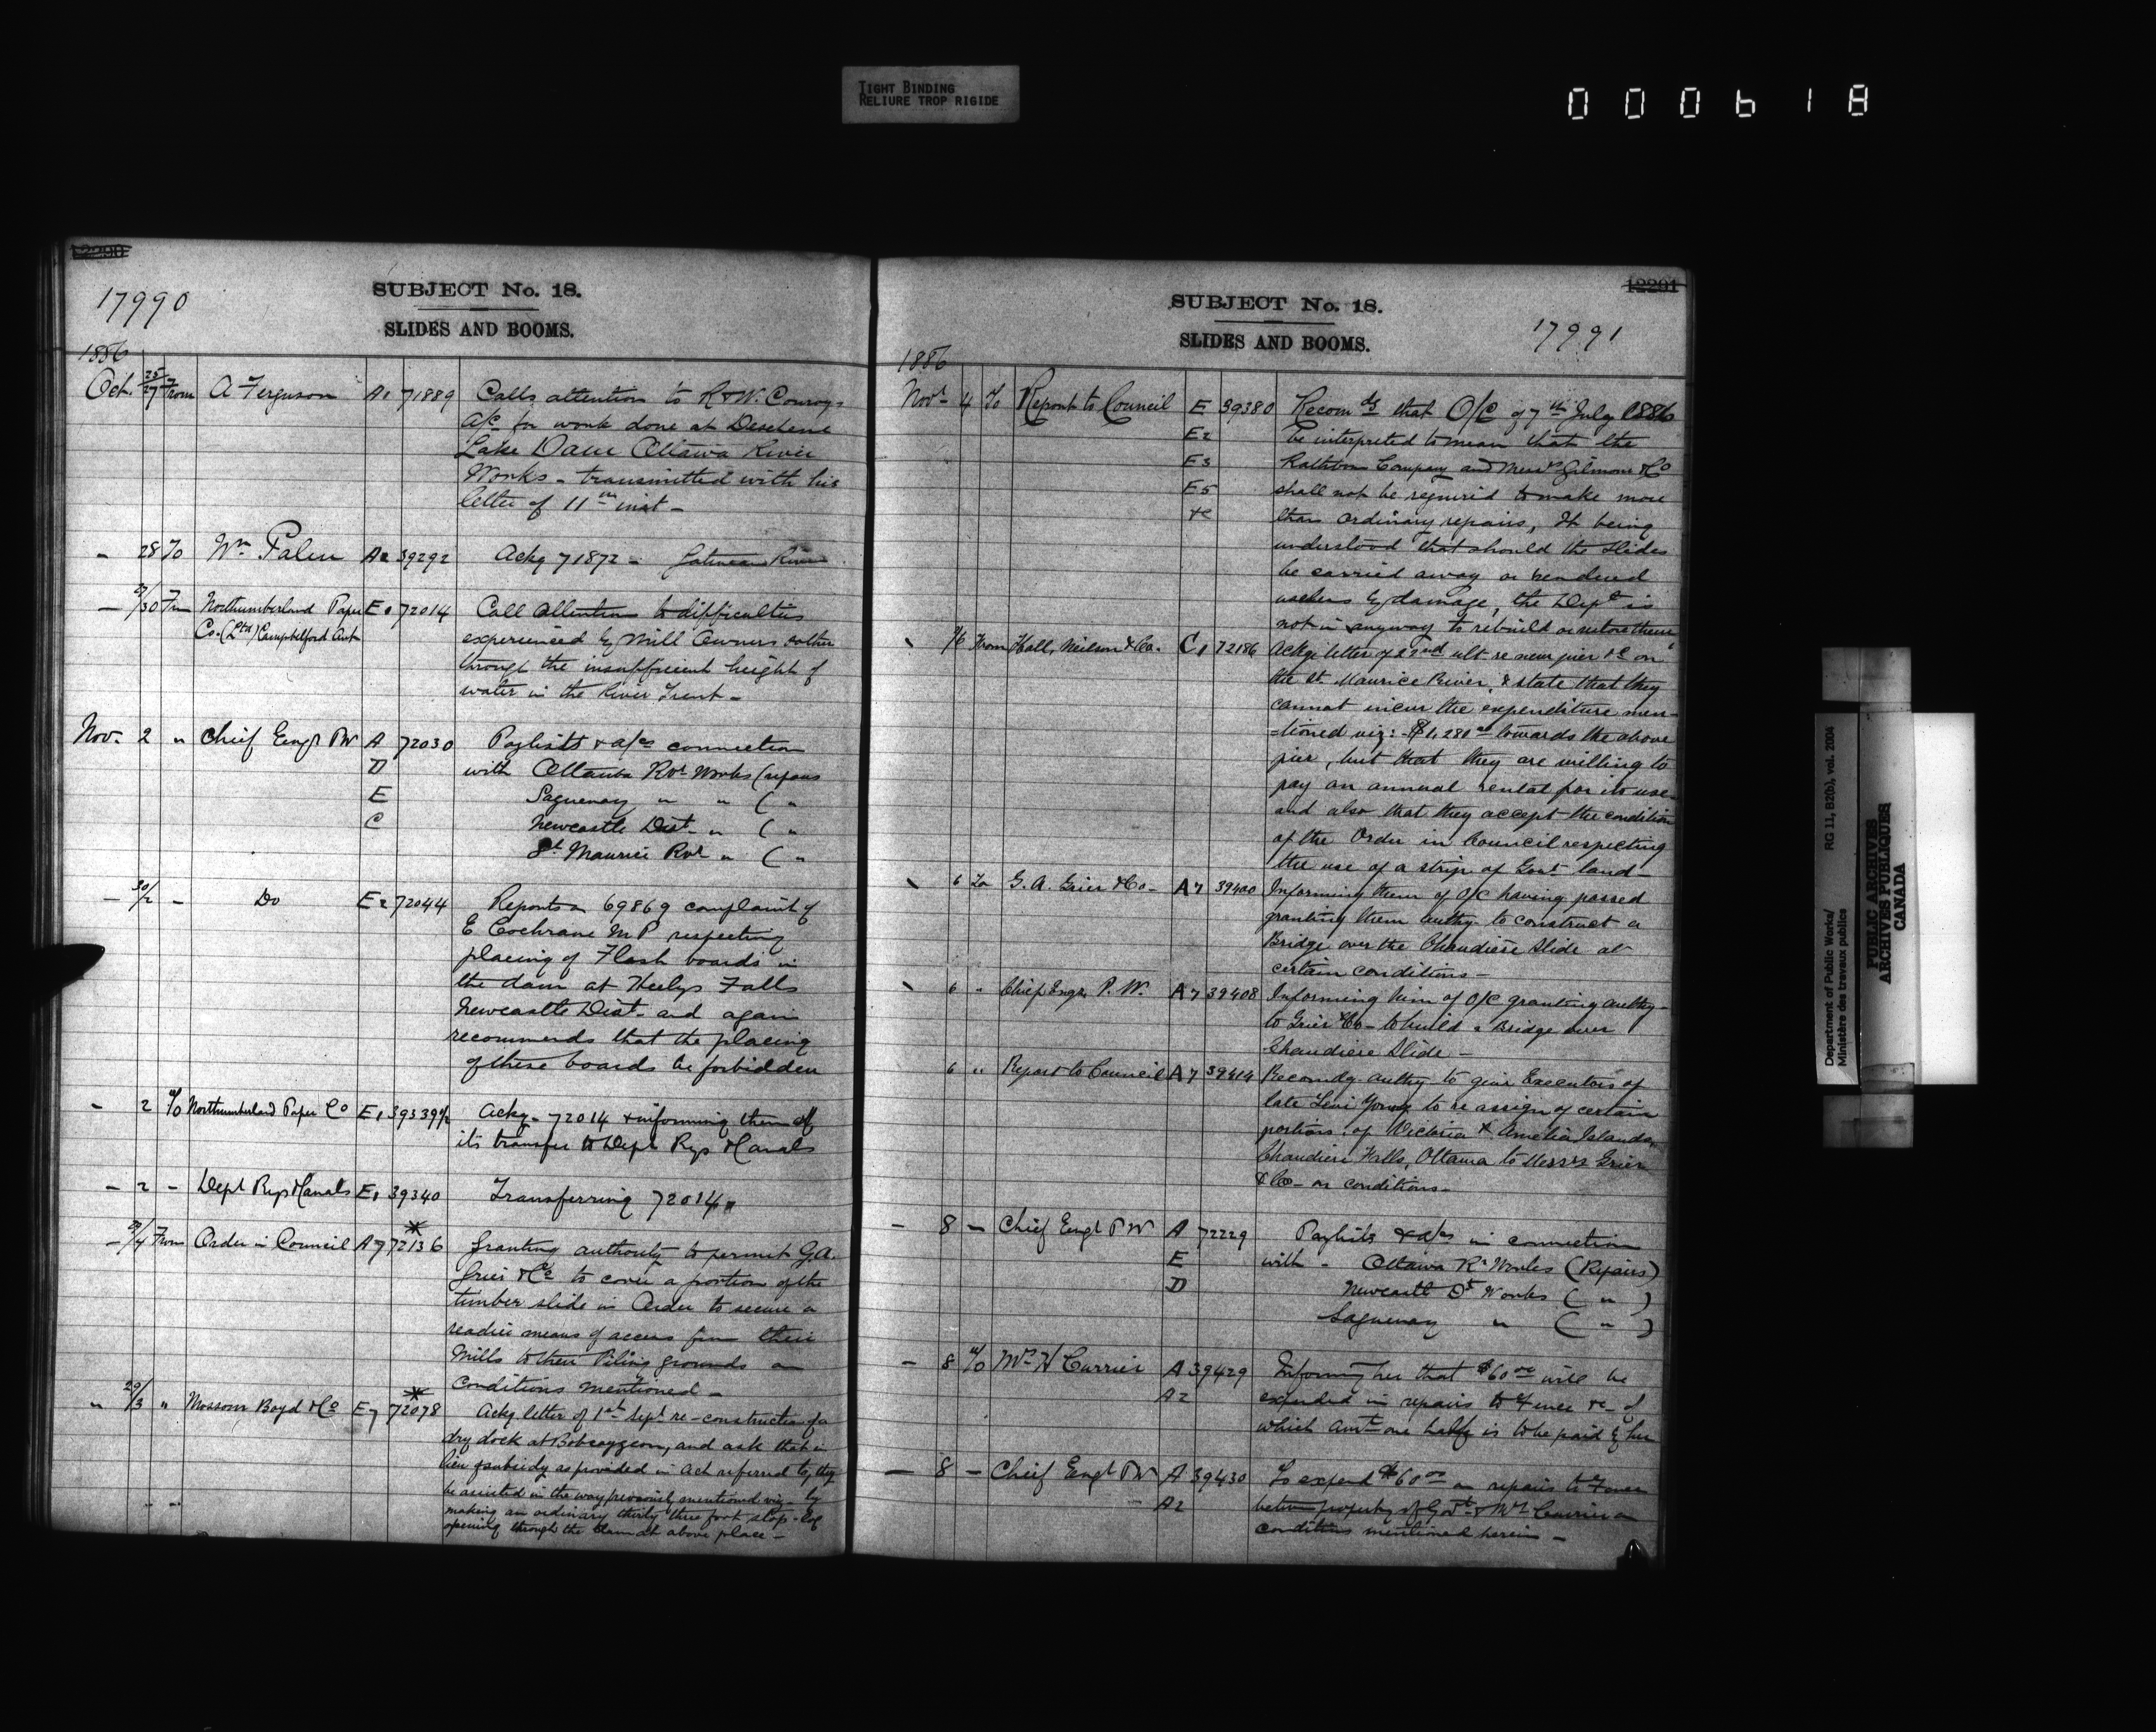 TIGHT BINDING
RELIURE TROP RIGIDE
000618
12290
17990
SUBJECT No. 18.
SLIDES AND BOOMS.
1886
Oct. 25/27 From A Ferguson A1 71889 Calls attention to R & W. Conroys
a/c for work done at Deschene
Lake Dam Ottawa River
Works - transmitted with his
letter of 11th inst -
- 28 To Wm Palen A2 39292 Ackg 71872 - Gatineau River
- /30 Frm Northumberland Paper E1 72014 Call attention to difficulties
Co. (Ltd) Campbellford Ont experienced by Mill Owners & other
through the insufficient height of
water in the River Trent -
Nov. 2 " Chief Engr PW A 72030 Paylists & a/cs connection
D with Ottawa Rvr Works (repairs
E Saguenay " " ( "
C Newcastle Dist. " ( "
St. Maurice Rvr " ( "
- 30/2 - Do E2 72044 Reports on 69869 complaint of
E Cochrane M P respecting
placing of Flash boards in
the dam at Heelys Falls
Newcastle Dist. and again
recommends that the placing
of these boards be forbidden
- 2 To Northumberland Paper Co E1 39339 1/2 Ackg - 72014 & informing them of
its transfer to Dept Rys & Canals
- 2 - Dept Rys & Canals E1 39340 Transferring 72014 "
- /4 From Order in Council A7 *72136 Granting authority to permit G.A.
Grier & Co to cover a portion of the
timber slide in Order to secure a
readier means of access from their
Mills to their Piling grounds on
Conditions mentioned -
" 29/3 " Mossom Boyd & Co E7 *72078 Ackg letter of 1st Sept re-construction of a
dry dock at Bobcaygeon, and ask that in
lieu of subsidy as provided in Act referred to, they
be assisted in the way previously mentioned viz - by
making an ordinary thirty three foot stop-log
opening through the dam at above place -
12291
SUBJECT No. 18.
SLIDES AND BOOMS.
17991
1886
Novr 4 To Report to Council E 39380 Recomds that O/C of 7th July 1886
E2 be interpreted to mean that the
E3 Rathbun Company and Messrs Gilmour & Co
E5 shall not be required to make more
&c than ordinary repairs, It being
understood that should the slides
be carried away or rendered
useless by damage, the Dept is
not in anyway to rebuild or restore them
/6 From Hall, Neilson & Co. C1 72186 Ackg letter of 22nd ult re new pier &c on
the St. Maurice River, & state that they
cannot incur the expenditure men-
=tioned viz: - $1,280 00 towards the above
pier, but that they are willing to
pay an annual rental for its use
and also that they accept the condition
of the Order in Council respecting
the use of a strip of Govt land -
6 To G. A. Grier & Co - A7 39400 Informing them of O/C having passed
granting them authy. to construct a
Bridge over the Chaudiere Slide at
certain conditions -
6 " Chief Engr. P. W. A7 39408 Informing him of O/C granting authy -
to Grier & Co - to build a Bridge over
Chaudiere Slide -
6 " Report to Council A7 39414 Recomdg. authy to give Executors of
late Levi Young to re assign of certain
portions of Victoria & Amelia Islands,
Chaudiere Falls, Ottawa to Messrs Grier
& Co - on conditions -
- 8 - Chief Engr P W A 72229 Paylists & a/cs in connection
E with - Ottawa Rr Works (Repairs)
D Newcastle Dt Works ( " )
Saguenay " ( " )
- 8 To Mrs H Currier A 39429 Informing her that $60 00 will be
A2 expended in repairs to Fence &c - of
which amt one half is to be paid by her
- 8 - Chief Engr P W A 39430 To expend $60 00 on repairs to Fence
A2 between property of Govt & Mrs Currier on
conditions mentioned herein -
Department of Public Works/ RG 11, B2(b), vol. 2004
Ministère des travaux publics
PUBLIC ARCHIVES
ARCHIVES PUBLIQUES
CANADA